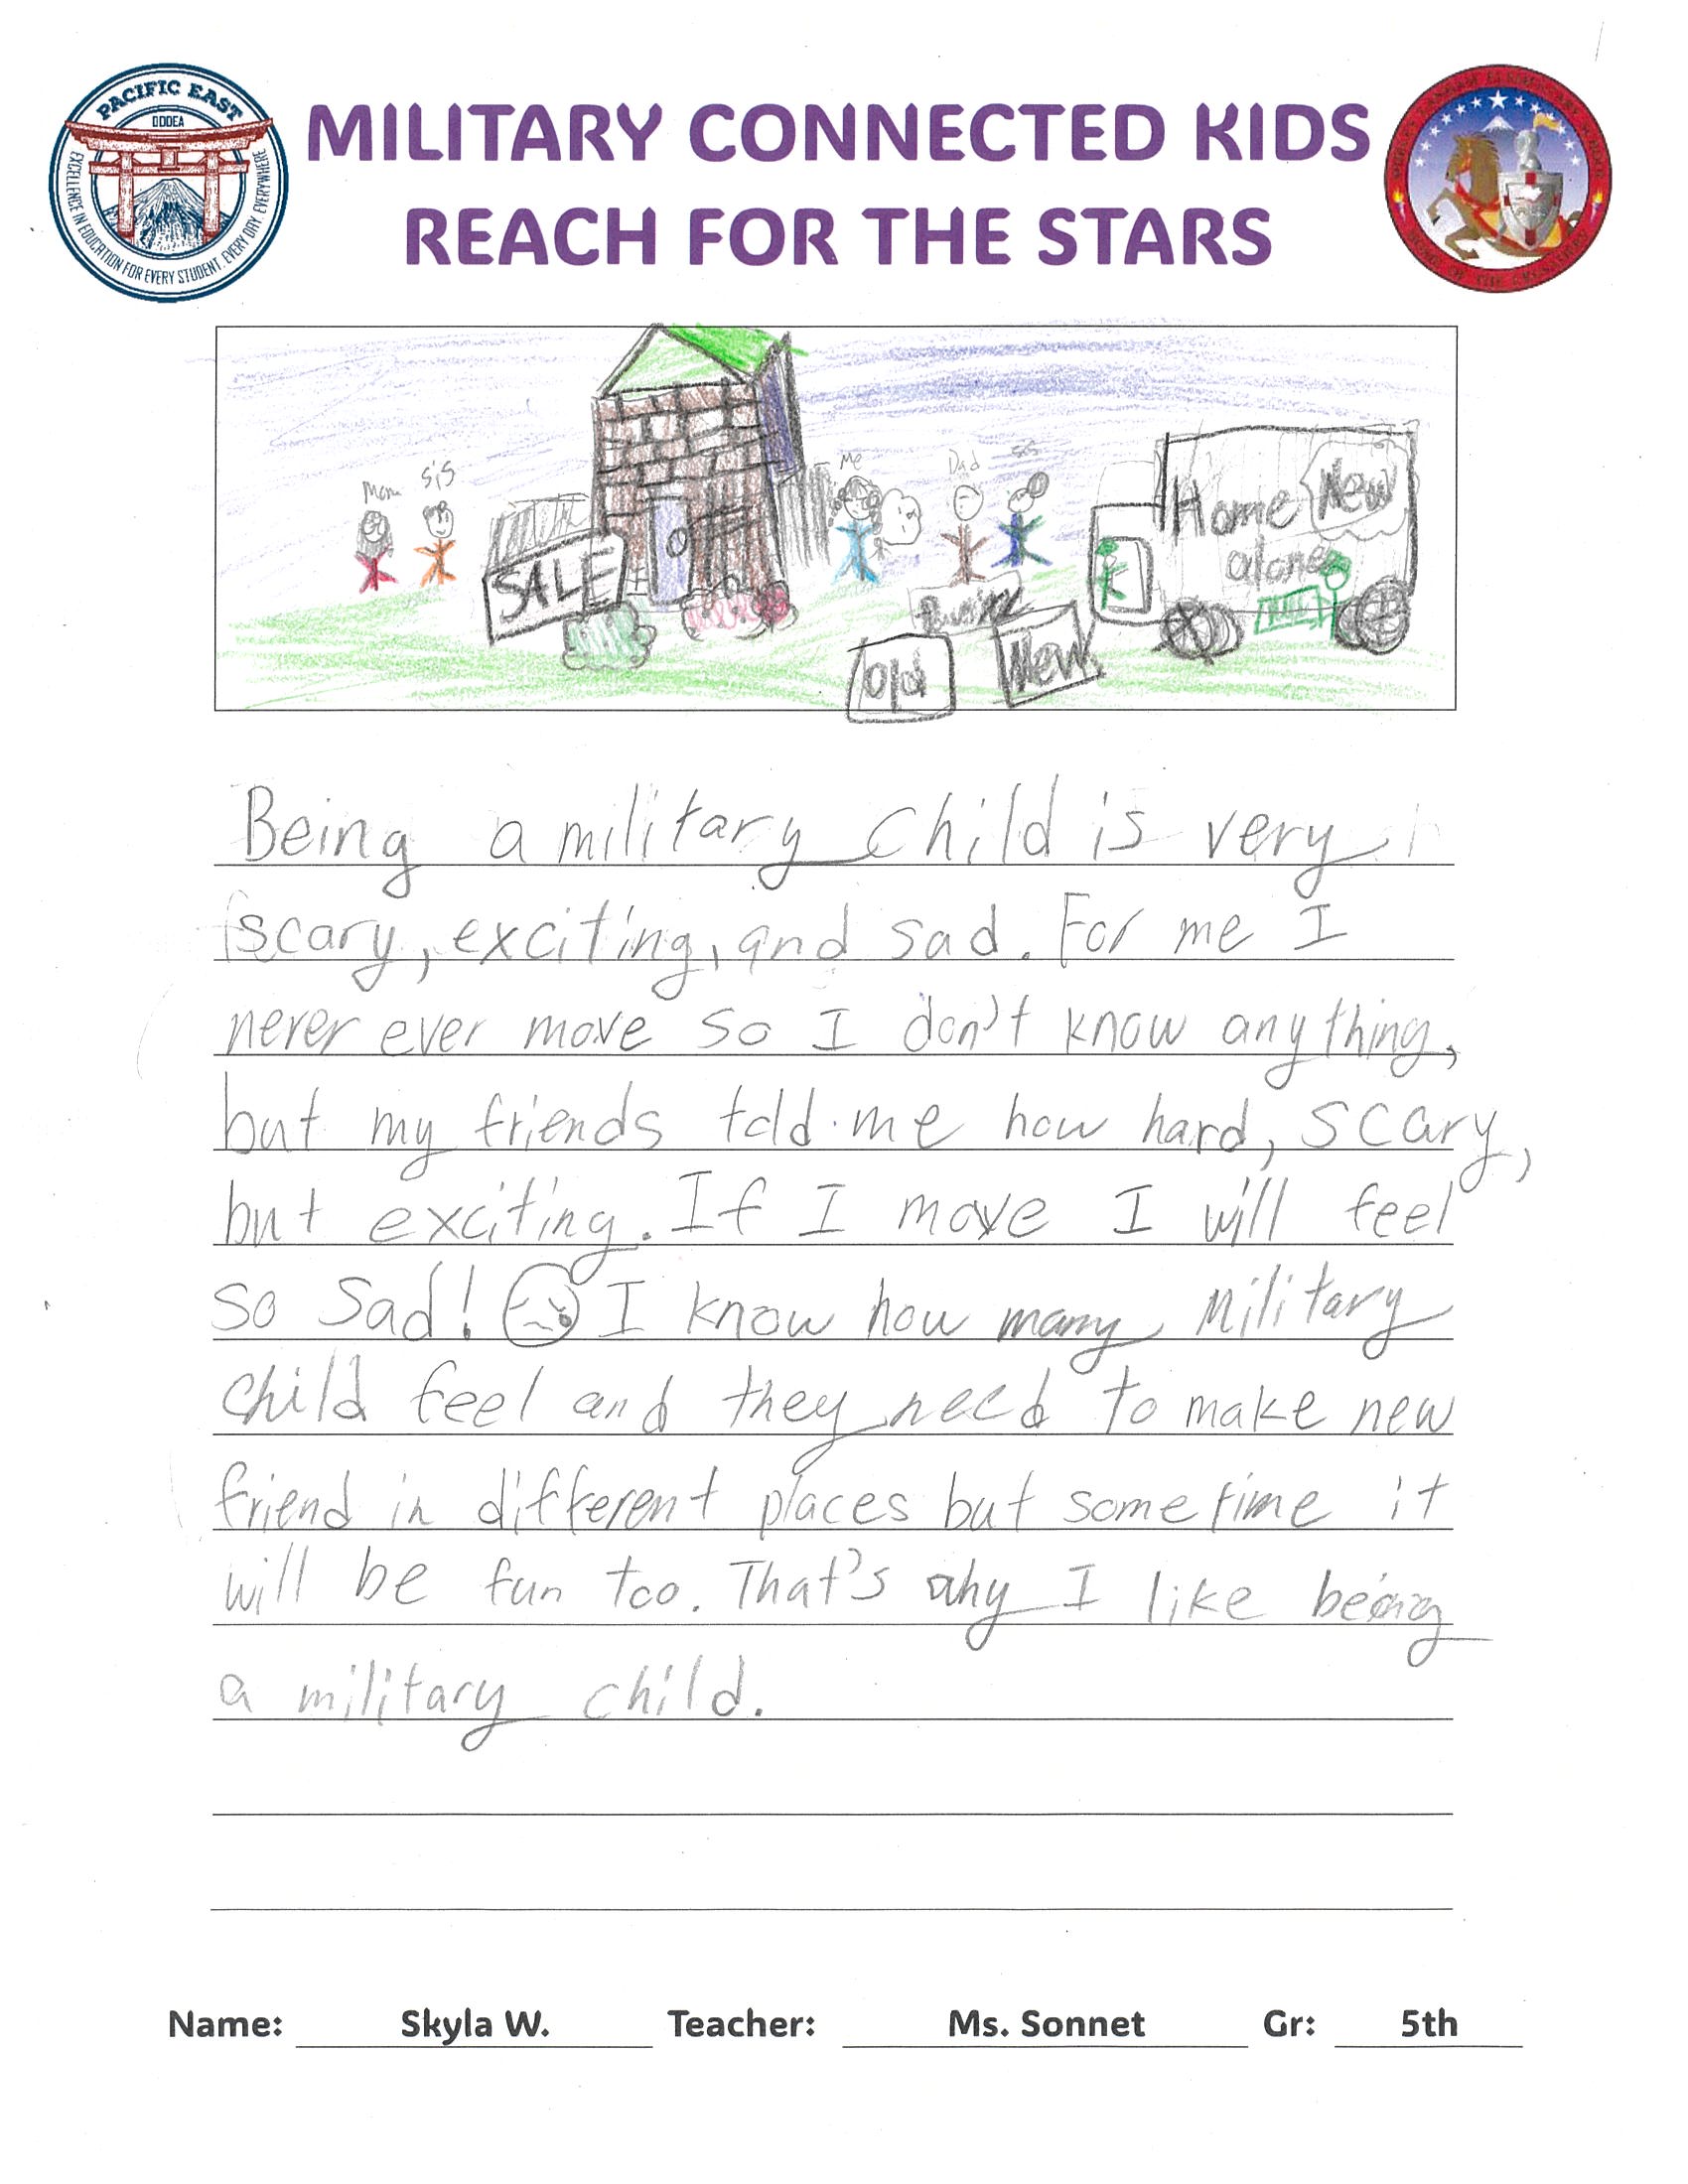 PACIFIC EAST
DODEA
EXCELLENCE IN EDUCATION FOR EVERY STUDENT, EVERY DAY, EVERYWHERE
MILITARY CONNECTED KIDS
REACH FOR THE STARS
Mom
sis
Me
Dad
sis
SALE
Home New
alone
Old
New
Being a military child is very
scary, exciting, and sad. For me I
never ever move so I don't know anything,
but my friends told me how hard, scary,
but exciting. If I move I will feel
so sad! I know how many military
child feel and they need to make new
friend in different places but sometime it
will be fun too. That's why I like being
a military child.
Name: Skyla W. Teacher: Ms. Sonnet Gr: 5th